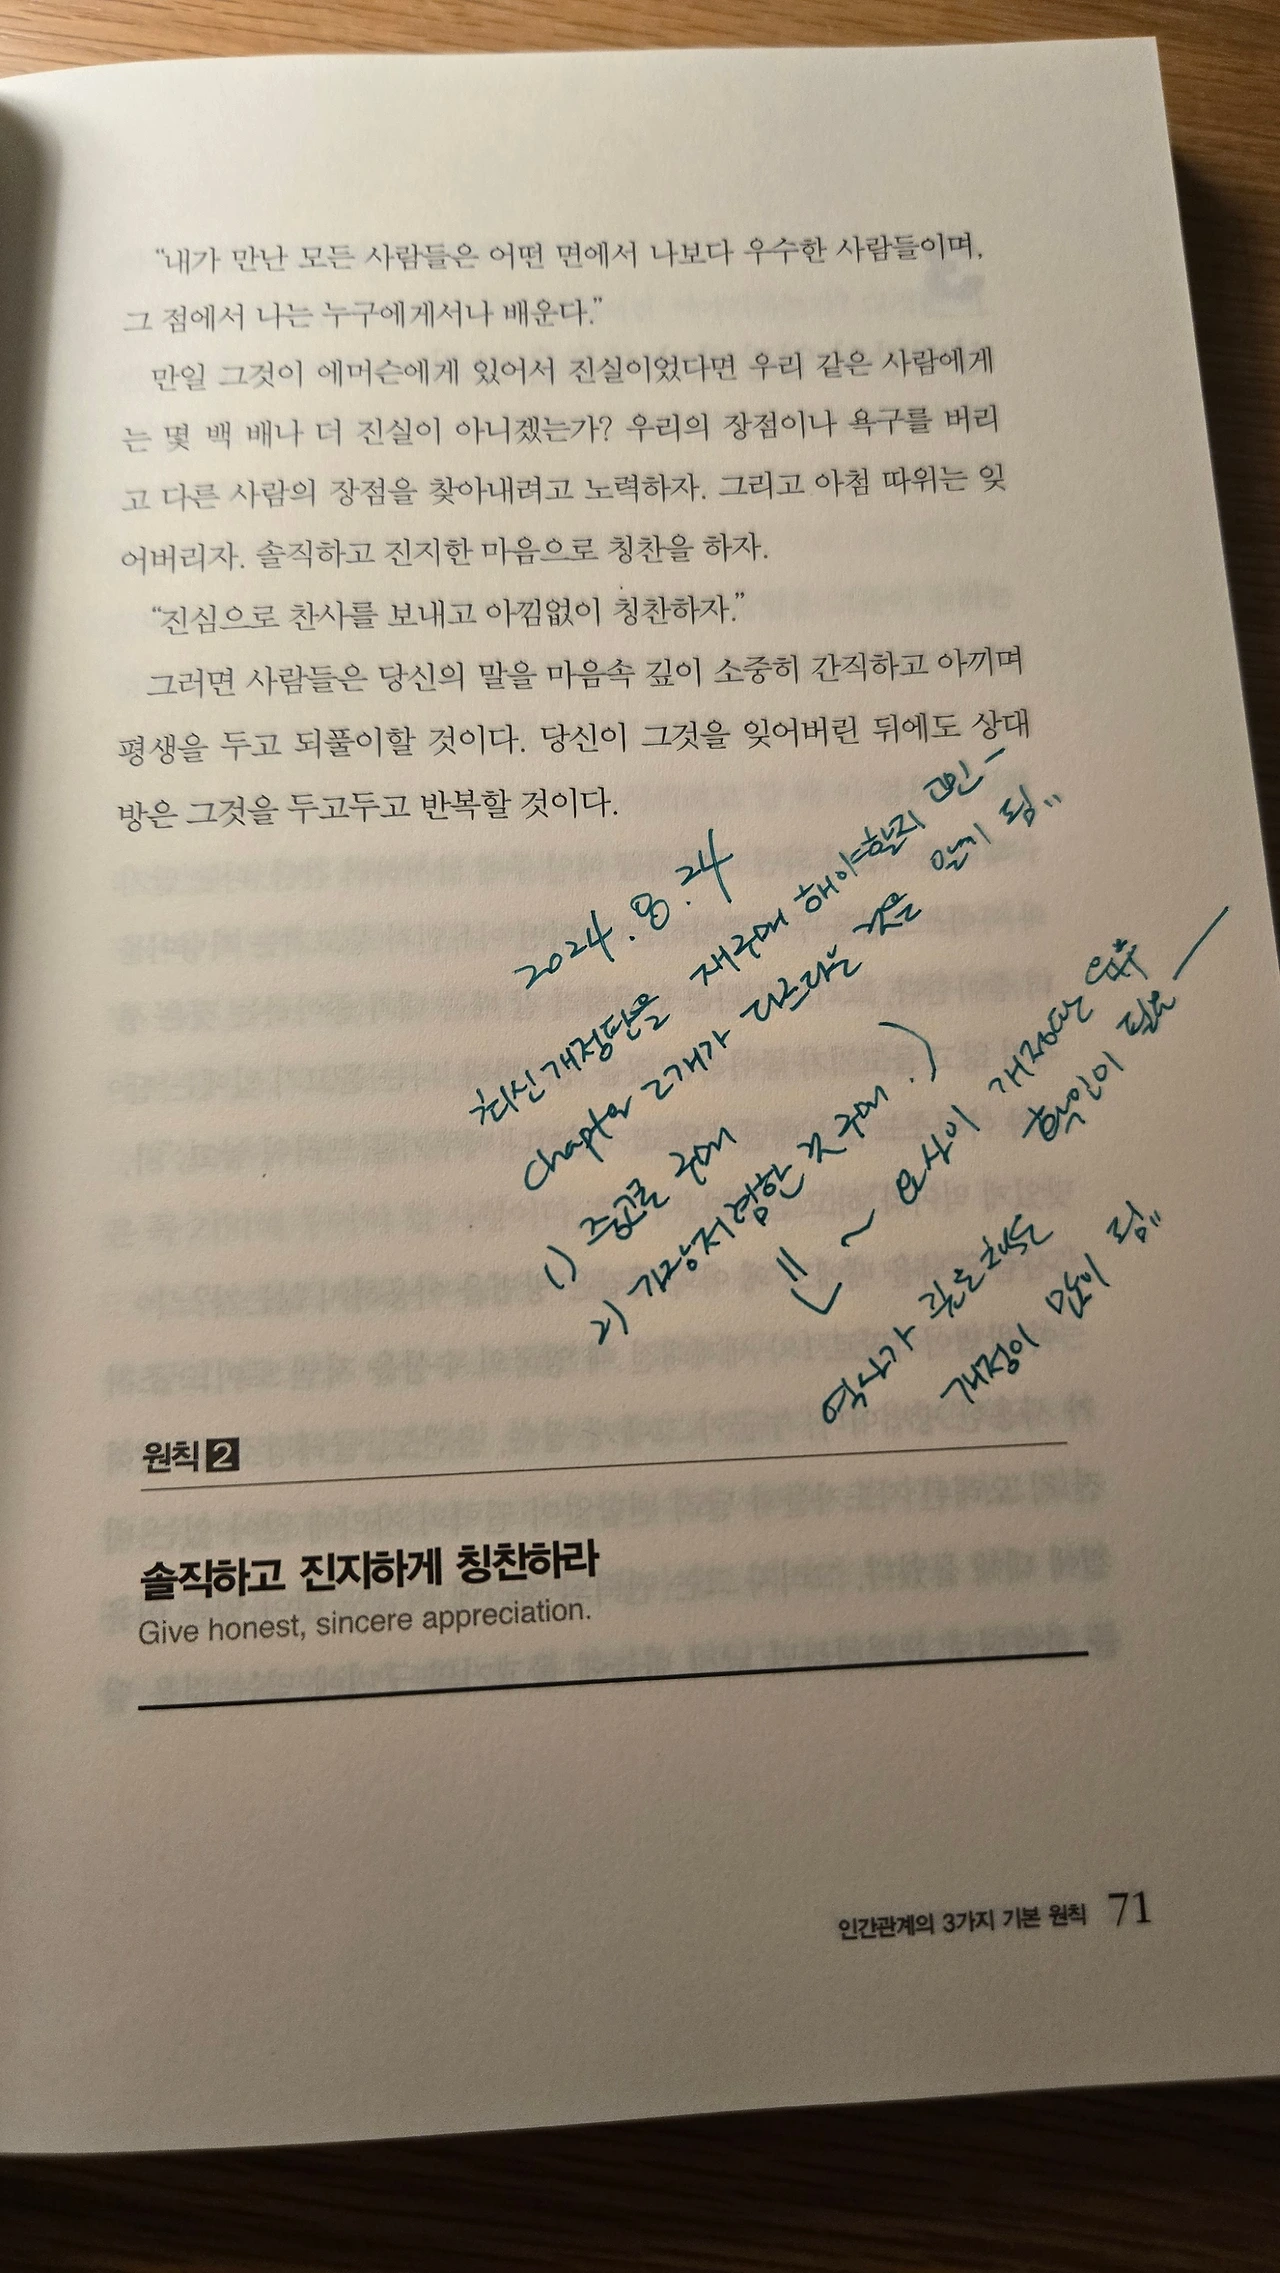 “내가 만난 모든 사람들은 어떤 면에서 나보다 우수한 사람들이며,
그 점에서 나는 누구에게서나 배운다.”
만일 그것이 에머슨에게 있어서 진실이었다면 우리 같은 사람에게
는 몇 백 배나 더 진실이 아니겠는가? 우리의 장점이나 욕구를 버리
고 다른 사람의 장점을 찾아내려고 노력하자. 그리고 아첨 따위는 잊
어버리자. 솔직하고 진지한 마음으로 칭찬을 하자.
“진심으로 찬사를 보내고 아낌없이 칭찬하자.”
그러면 사람들은 당신의 말을 마음속 깊이 소중히 간직하고 아끼며
평생을 두고 되풀이할 것이다. 당신이 그것을 잊어버린 뒤에도 상대
방은 그것을 두고두고 반복할 것이다.
2024.8.24
최신개정판을 재구매 해야할지 고민 –
chapter 2개가 다르다는 것을 알게 됨"
1) 중고로 구매
2) 가장저렴한 것 구매.)
~ 요상이 개정판 여부
확인이 필요 —
역사가 깊은 책은
개정이 많이 됨"
원칙 2
솔직하고 진지하게 칭찬하라
Give honest, sincere appreciation.
인간관계의 3가지 기본 원칙 71